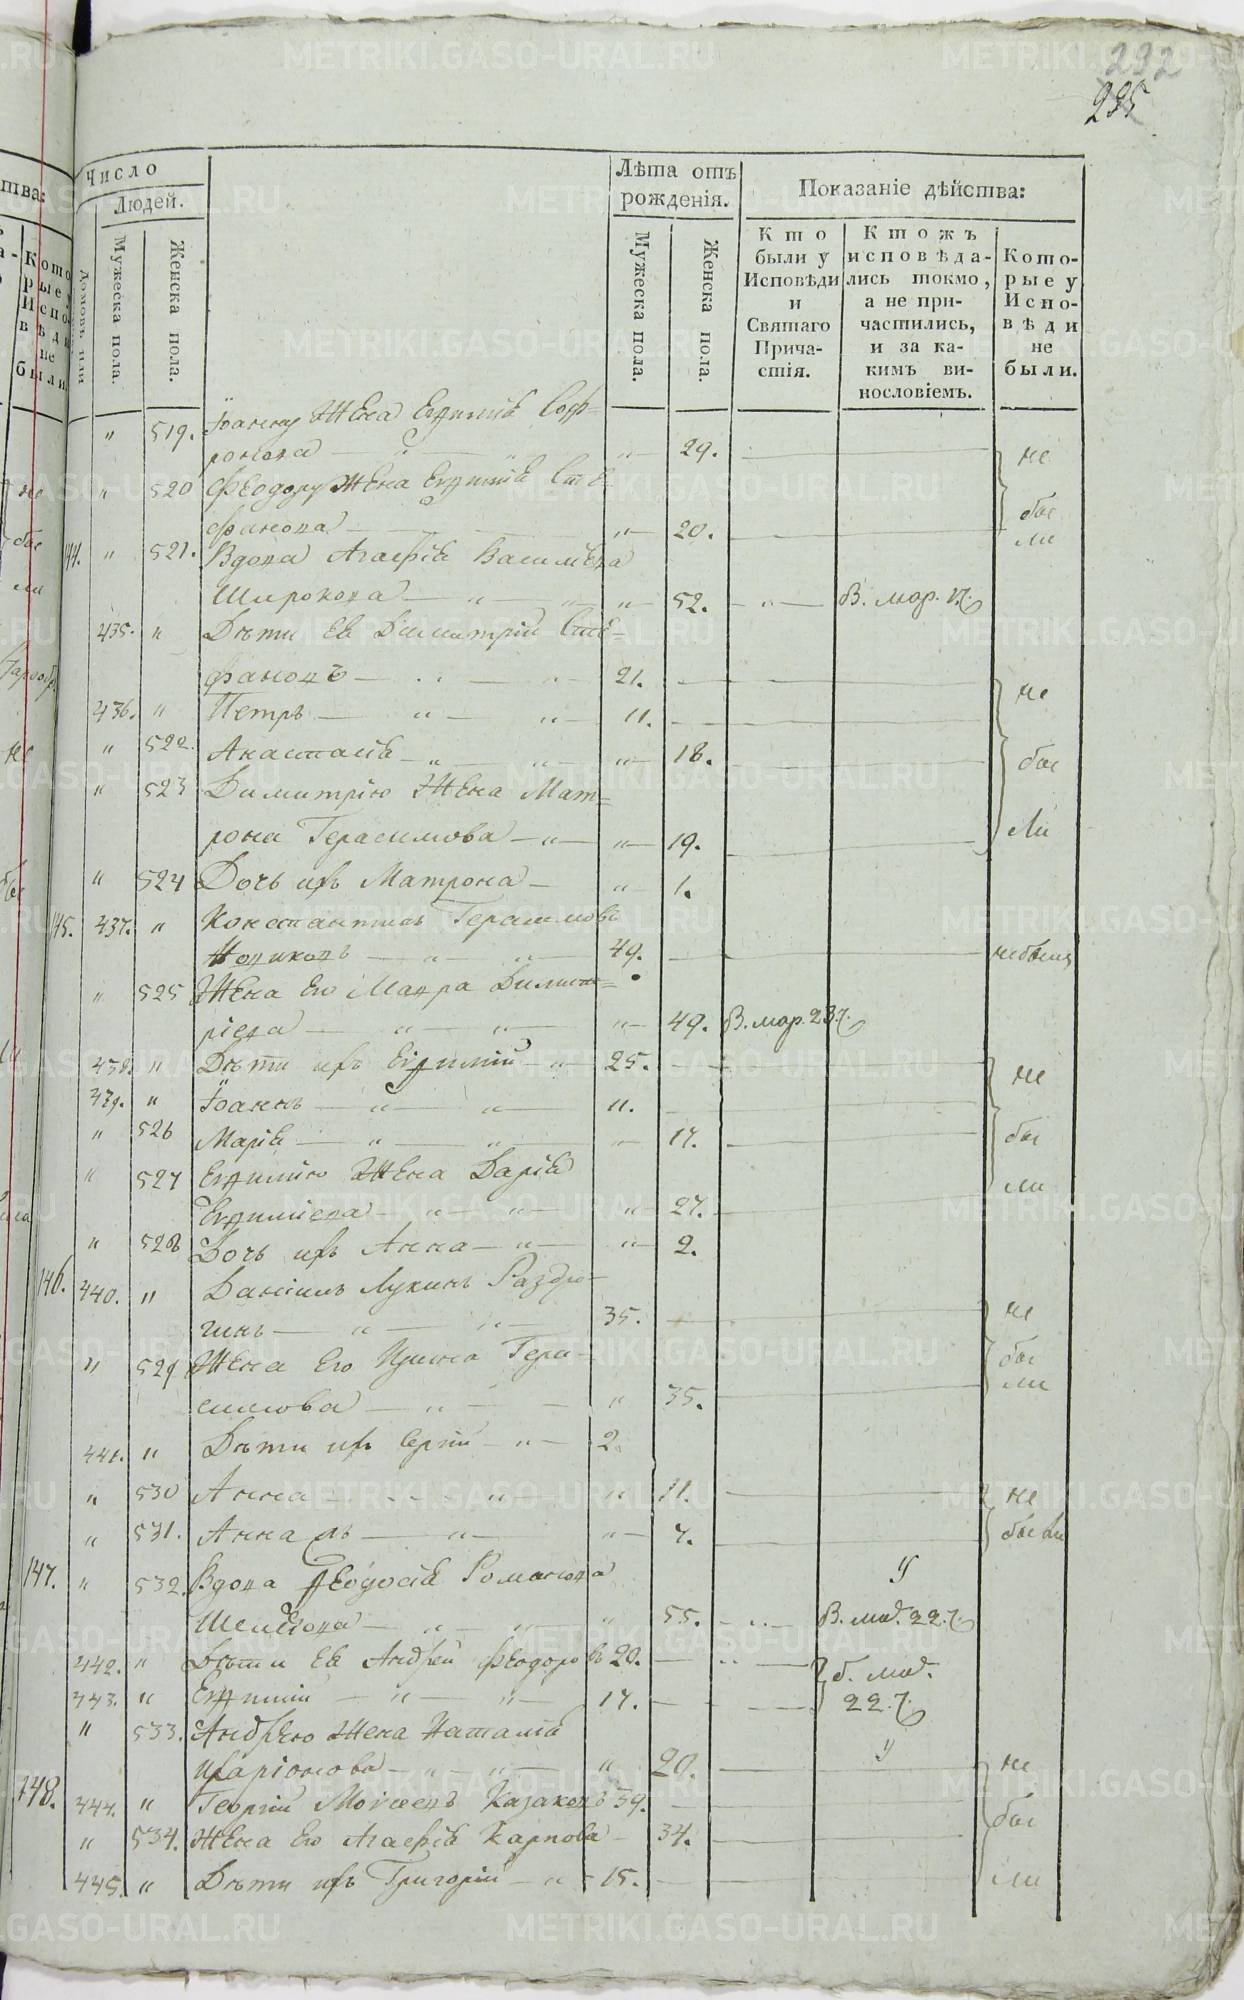 232
235
Число
Людей.
Домовъ или
Мужеска пола.
Женска пола.
Лѣта отъ
рожденія.
Мужеска пола.
Женска пола.
Показаніе дѣйства:
Кто
были у
Исповѣди
и
Святаго
Прича-
стія.
Ктожъ
исповѣда-
лись токмо,
а не при-
частились,
и за ка-
кимъ ви-
нословіемъ.
Кото-
рые у
Испо-
вѣди
не
были.
" 519. Іоанну Жена Евдимія Соф=
ронова — " — " — 29. не
" 520 Феодору Жена Евдимія Сте
фанова — " — 20. бы
144. " 521. Вдова Агафія Васильева ли
Широкова — " — " — " — 52. — " — В. мар. 17.
435. " Дѣти Ея Димитрій Сте=
фановъ — " — 21. не
436. " Петръ — " — " — 11.
" 522. Анастасія — " — " — " — 18. бы
" 523 Димитрію Жена Мат=
рона Герасимова — " — " — 19. ли
" 524 Дочь ихъ Матрона — " — 1.
145. 437. " Константинъ Герасимовъ
Новиковъ — " — " — 49. небыли
" 525 Жена Его Мавра Димит=
ріева — " — " — " — 49. В. мар. 23.
438. " Дѣти ихъ Евдимій — " — 25. не
439. " Іоаннъ — " — " — 11.
" 526 Марія — " — " — " — 17. бы
" 527 Евдимію Жена Дарія
Евдиміева — " — " — " — 27. ли
" 528 Дочь ихъ Анна — " — " — 2.
146. 440. " Даніилъ Лукинъ Раздро-
гинъ — " — " — 35. не
" 529 Жена Его Ирина Гера-
симова — " — " 35. бы
ли
441. " Дѣти ихъ Сергій — " — 2.
" 530 Анна — " — " 11. не
" 531. Анна — " — " — 7. были
147. " 532. Вдова Феодосія Романова
— " — " 55. — " — В. 22.
442. " Дѣти Ея Андрей Феодоровъ 20. — " —
443. " Евдимій — " — " — 17. 22.
" 533. Андрею Жена Наталія
Иларіонова — " — " — " 20. не
148. 444. " Георгій Моисеевъ Казаковъ 39. бы
" 534. Жена Его Агафія Карпова — 34.
445. " Дѣти ихъ Григорій — " — 15. ли